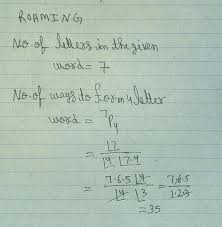 ROAMING
No. of letters in the given
word = 7
No. of ways to form 4 letter
word = ⁷P₄
= |7 / |4 |7-4
= 7.6.5 |4 / |4 |3 = 7.6.5 / 1.23
= 35